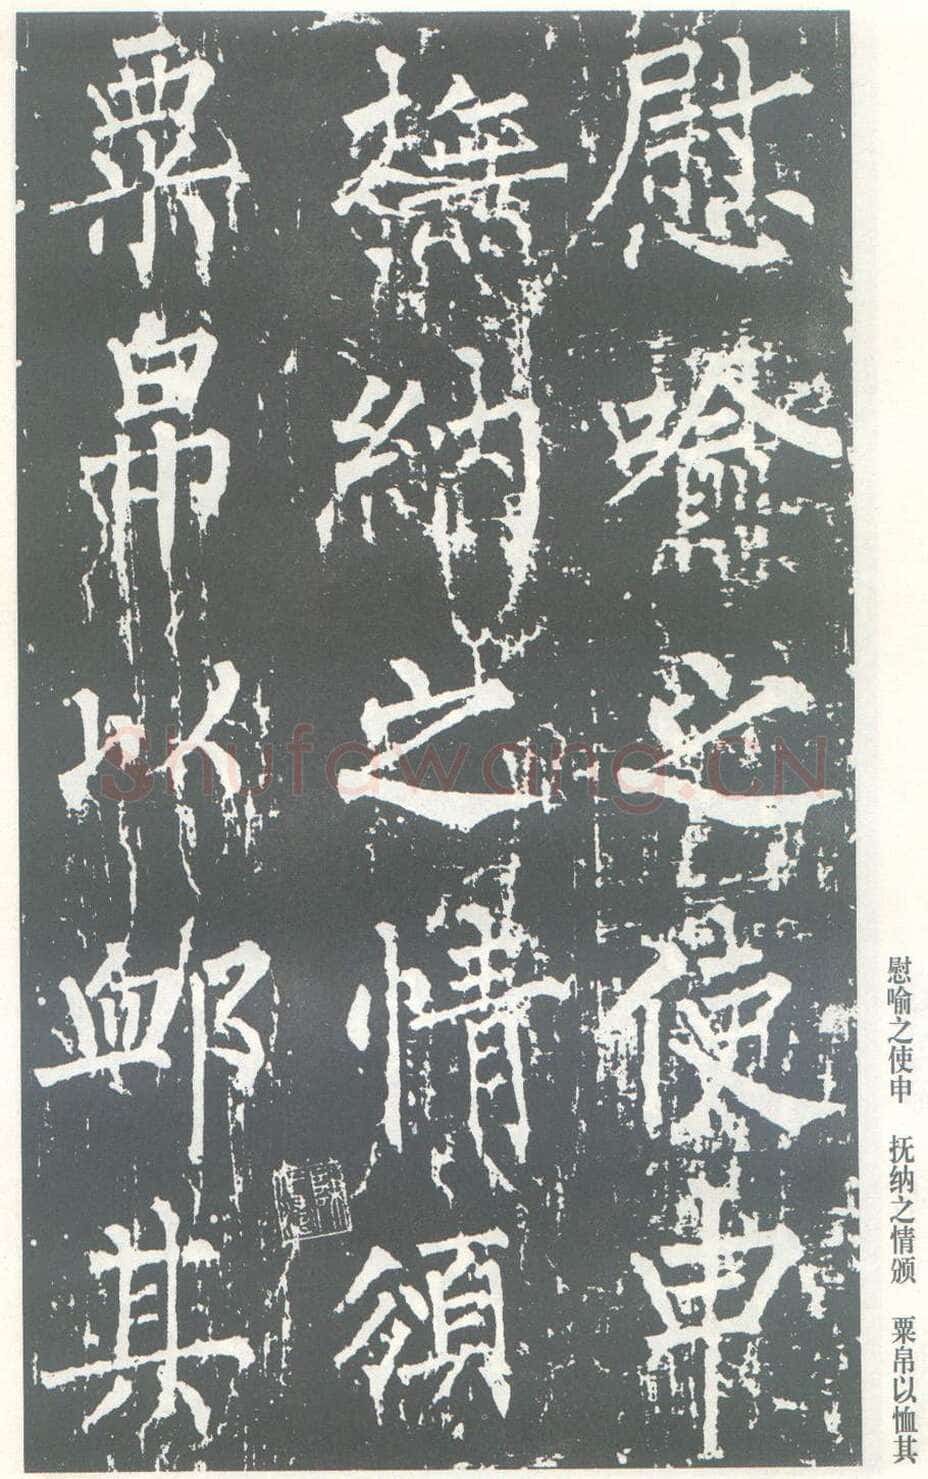 慰喻之使申
撫納之情頒
粟帛以卹其
慰喻之使申　抚纳之情颁　粟帛以恤其
Shufawang.CN